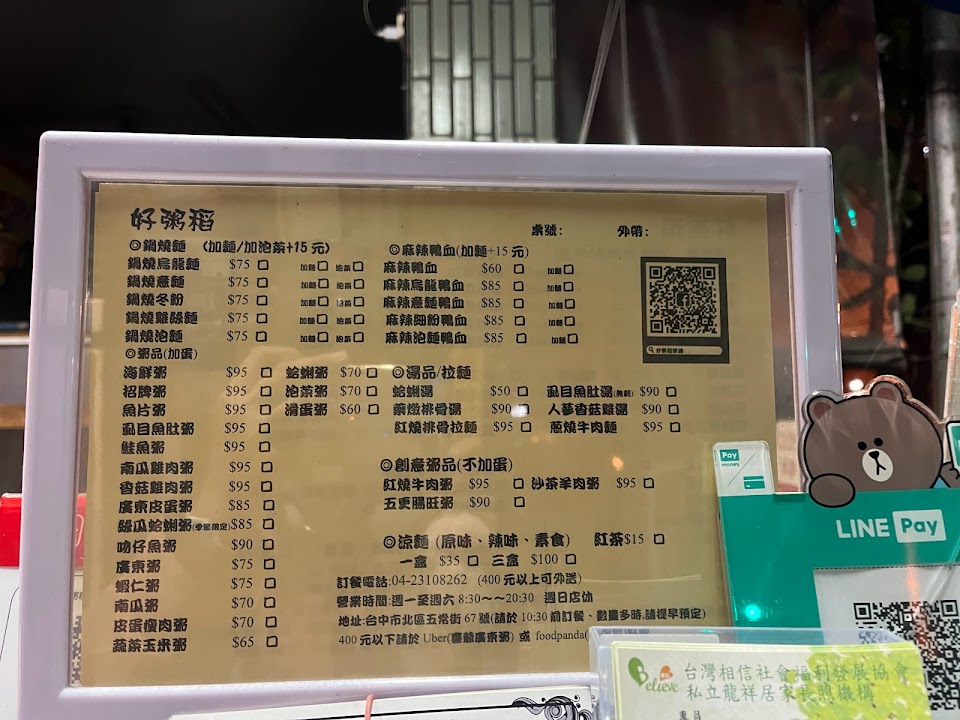 好粥稻
桌號: 外帶:
◎鍋燒麵 (加麵/加泡菜+15元)
鍋燒烏龍麵 $75 □ 加麵□ 泡菜□
鍋燒意麵 $75 □ 加麵□ 泡菜□
鍋燒冬粉 $75 □ 加麵□ 泡菜□
鍋燒雞絲麵 $75 □ 加麵□ 泡菜□
鍋燒泡麵 $75 □ 加麵□ 泡菜□
◎麻辣鴨血(加麵+15元)
麻辣鴨血 $60 □ 加麵□
麻辣烏龍鴨血 $85 □ 加麵□
麻辣意麵鴨血 $85 □ 加麵□
麻辣細粉鴨血 $85 □ 加麵□
麻辣泡麵鴨血 $85 □ 加麵□
好粥稻菜鋪
◎粥品(加蛋)
海鮮粥 $95 □ 蛤蜊粥 $70 □
招牌粥 $95 □ 泡菜粥 $70 □
魚片粥 $95 □ 滑蛋粥 $60 □
虱目魚肚粥 $95 □
鮭魚粥 $95 □
南瓜雞肉粥 $95 □
香菇雞肉粥 $95 □
廣東皮蛋粥 $85 □
絲瓜蛤蜊粥(季節限定)$85 □
吻仔魚粥 $90 □
廣東粥 $75 □
蝦仁粥 $75 □
南瓜粥 $70 □
皮蛋瘦肉粥 $70 □
蔬菜玉米粥 $65 □
◎湯品/拉麵
蛤蜊湯 $50 □ 虱目魚肚湯(無刺) $90 □
藥燉排骨湯 $90 □ 人蔘香菇雞湯 $90 □
紅燒排骨拉麵 $95 □ 蔥燒牛肉麵 $95 □
◎創意粥品(不加蛋)
紅燒牛肉粥 $95 □ 沙茶羊肉粥 $95 □
五更腸旺粥 $90 □
◎涼麵 (原味、辣味、素食) 紅茶$15 □
一盒 $35 □ 三盒 $100 □
訂餐電話:04-23108262 (400元以上可外送)
營業時間:週一至週六 8:30~~20:30 週日店休
地址:台中市北區五常街67號(請於10:30前訂餐、數量多時,請提早預定)
400元以下請於 Uber(慶爺廣東粥) 或 foodpanda(
Pay
money
LINE Pay
Believe
台灣相信社會福利發展協會
私立龍祥居家長照機構
專員